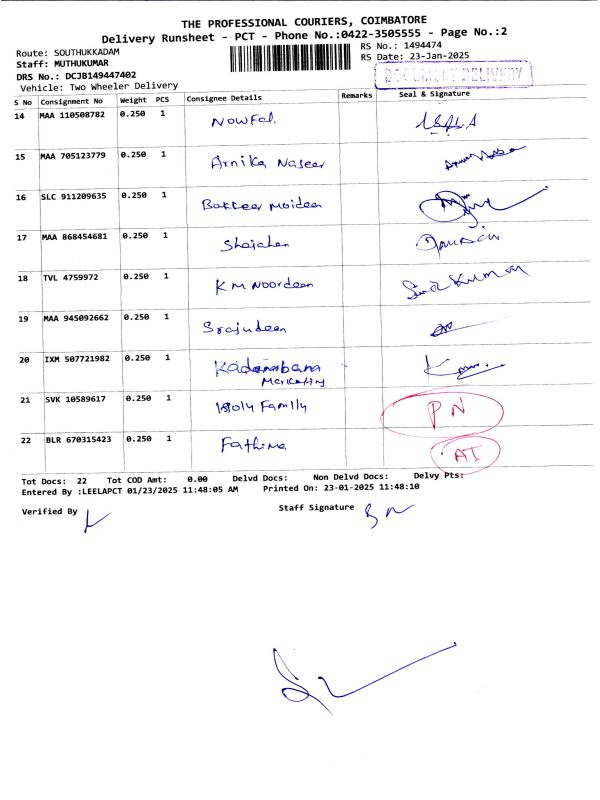 THE PROFESSIONAL COURIERS, COIMBATORE
Delivery Runsheet - PCT - Phone No.:0422-3505555 - Page No.:2
Route: SOUTHUKKADAM
RS No.: 1494474
Staff: MUTHUKUMAR
RS Date: 23-Jan-2025
DRS No.: DCJB149447402
Vehicle: Two Wheeler Delivery
DOCUMENT DELIVERY
S No Consignment No Weight PCS Consignee Details Remarks Seal & Signature
14 MAA 110508782 0.250 1 Nowfal
15 MAA 705123779 0.250 1 Arnika Naseer
16 SLC 911209635 0.250 1 Bakkeer Moideen
17 MAA 868454681 0.250 1 Shajahan
18 TVL 4759972 0.250 1 KM Noordeen
19 MAA 945092662 0.250 1 Srajudeen
20 IXM 507721982 0.250 1 Kadambana
Marketing
21 SVK 10589617 0.250 1 Holy Family PN
22 BLR 670315423 0.250 1 Fathima AI
Tot Docs: 22 Tot COD Amt: 0.00 Delvd Docs: Non Delvd Docs: Delvy Pts:
Entered By :LEELAPCT 01/23/2025 11:48:05 AM Printed On: 23-01-2025 11:48:10
Verified By Staff Signature